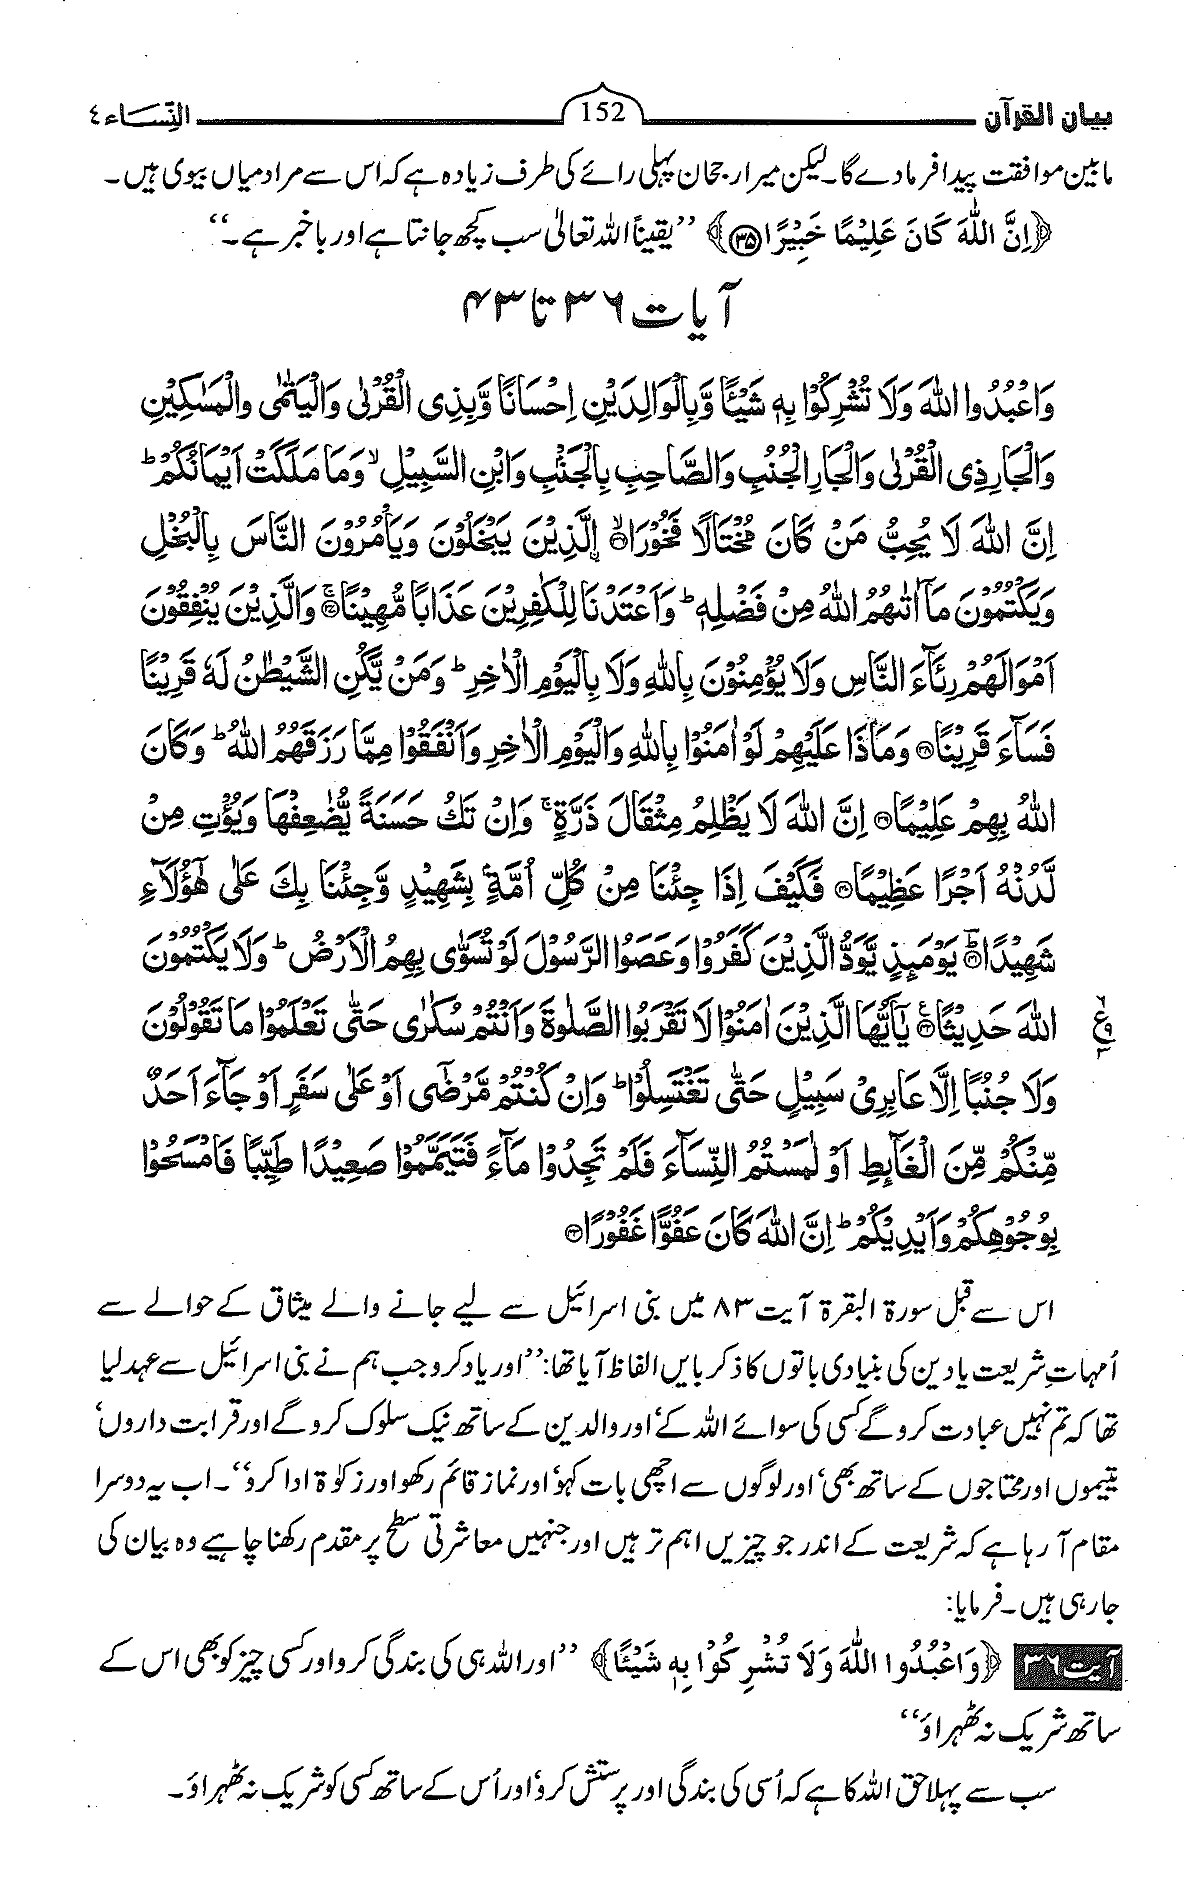 بیان القرآن 152 النِّسَاء ٤
مابین موافقت پیدا فرما دے گا۔ لیکن میرا رجحان پہلی رائے کی طرف زیادہ ہے کہ اس سے مراد میاں بیوی ہیں۔
﴿اِنَّ اللّٰهَ كَانَ عَلِيْمًا خَبِيْرًا ۝۳۵﴾ ’’یقیناً اللہ تعالیٰ سب کچھ جانتا ہے اور باخبر ہے۔‘‘
آیات ۳۶ تا ۴۳
وَاعْبُدُوا اللّٰهَ وَلَا تُشْرِكُوْا بِهٖ شَيْـًٔا وَّبِالْوَالِدَيْنِ اِحْسَانًا وَّبِذِي الْقُرْبٰى وَالْيَتٰمٰى وَالْمَسٰكِيْنِ
وَالْجَارِ ذِي الْقُرْبٰى وَالْجَارِ الْجُنُبِ وَالصَّاحِبِ بِالْجَنْۢبِ وَابْنِ السَّبِيْلِ ۙ وَمَا مَلَكَتْ اَيْمَانُكُمْ ؕ
اِنَّ اللّٰهَ لَا يُحِبُّ مَنْ كَانَ مُخْتَالًا فَخُوْرَا ۝۳۶ۙ الَّذِيْنَ يَبْخَلُوْنَ وَيَاْمُرُوْنَ النَّاسَ بِالْبُخْلِ
وَيَكْتُمُوْنَ مَآ اٰتٰىهُمُ اللّٰهُ مِنْ فَضْلِهٖ ؕ وَاَعْتَدْنَا لِلْكٰفِرِيْنَ عَذَابًا مُّهِيْنًا ۝۳۷ۚ وَالَّذِيْنَ يُنْفِقُوْنَ
اَمْوَالَهُمْ رِئَآءَ النَّاسِ وَلَا يُؤْمِنُوْنَ بِاللّٰهِ وَلَا بِالْيَوْمِ الْاٰخِرِ ؕ وَمَنْ يَّكُنِ الشَّيْطٰنُ لَهٗ قَرِيْنًا
فَسَآءَ قَرِيْنًا ۝۳۸ وَمَاذَا عَلَيْهِمْ لَوْ اٰمَنُوْا بِاللّٰهِ وَالْيَوْمِ الْاٰخِرِ وَاَنْفَقُوْا مِمَّا رَزَقَهُمُ اللّٰهُ ؕ وَكَانَ
اللّٰهُ بِهِمْ عَلِيْمًا ۝۳۹ اِنَّ اللّٰهَ لَا يَظْلِمُ مِثْقَالَ ذَرَّةٍ ۚ وَاِنْ تَكُ حَسَنَةً يُّضٰعِفْهَا وَيُؤْتِ مِنْ
لَّدُنْهُ اَجْرًا عَظِيْمًا ۝۴۰ فَكَيْفَ اِذَا جِئْنَا مِنْ كُلِّ اُمَّةٍۭ بِشَهِيْدٍ وَّجِئْنَا بِكَ عَلٰى هٰٓؤُلَآءِ
شَهِيْدًا ۝۴۱ؕ يَوْمَئِذٍ يَّوَدُّ الَّذِيْنَ كَفَرُوْا وَعَصَوُا الرَّسُوْلَ لَوْ تُسَوّٰى بِهِمُ الْاَرْضُ ؕ وَلَا يَكْتُمُوْنَ
اللّٰهَ حَدِيْثًا ۝۴۲ۧ يٰٓاَيُّهَا الَّذِيْنَ اٰمَنُوْا لَا تَقْرَبُوا الصَّلٰوةَ وَاَنْتُمْ سُكٰرٰى حَتّٰى تَعْلَمُوْا مَا تَقُوْلُوْنَ
وَلَا جُنُبًا اِلَّا عَابِرِيْ سَبِيْلٍ حَتّٰى تَغْتَسِلُوْا ؕ وَاِنْ كُنْتُمْ مَّرْضٰٓى اَوْ عَلٰى سَفَرٍ اَوْ جَآءَ اَحَدٌ
مِّنْكُمْ مِّنَ الْغَآئِطِ اَوْ لٰمَسْتُمُ النِّسَآءَ فَلَمْ تَجِدُوْا مَآءً فَتَيَمَّمُوْا صَعِيْدًا طَيِّبًا فَامْسَحُوْا
بِوُجُوْهِكُمْ وَاَيْدِيْكُمْ ؕ اِنَّ اللّٰهَ كَانَ عَفُوًّا غَفُوْرًا ۝۴۳
اس سے قبل سورۃ البقرۃ آیت ۸۳ میں بنی اسرائیل سے لیے جانے والے میثاق کے حوالے سے
اُمہاتِ شریعت یا دین کی بنیادی باتوں کا ذکر بایں الفاظ آیا تھا: ’’اور یاد کرو جب ہم نے بنی اسرائیل سے عہد لیا
تھا کہ تم نہیں عبادت کرو گے کسی کی سوائے اللہ کے‘ اور والدین کے ساتھ نیک سلوک کرو گے اور قرابت داروں‘
یتیموں اور محتاجوں کے ساتھ بھی‘ اور لوگوں سے اچھی بات کہو‘ اور نماز قائم رکھو اور زکوٰۃ ادا کرو‘‘۔ اب یہ دوسرا
مقام آ رہا ہے کہ شریعت کے اندر جو چیزیں اہم تر ہیں اور جنہیں معاشرتی سطح پر مقدم رکھنا چاہیے وہ بیان کی
جا رہی ہیں۔ فرمایا:
آیت ۳۶ ﴿وَاعْبُدُوا اللّٰهَ وَلَا تُشْرِكُوْا بِهٖ شَيْـًٔا﴾ ’’اور اللہ ہی کی بندگی کرو اور کسی چیز کو بھی اس کے
ساتھ شریک نہ ٹھہراؤ‘‘
سب سے پہلا حق اللہ کا ہے کہ اُسی کی بندگی اور پرستش کرو‘ اور اُس کے ساتھ کسی کو شریک نہ ٹھہراؤ۔